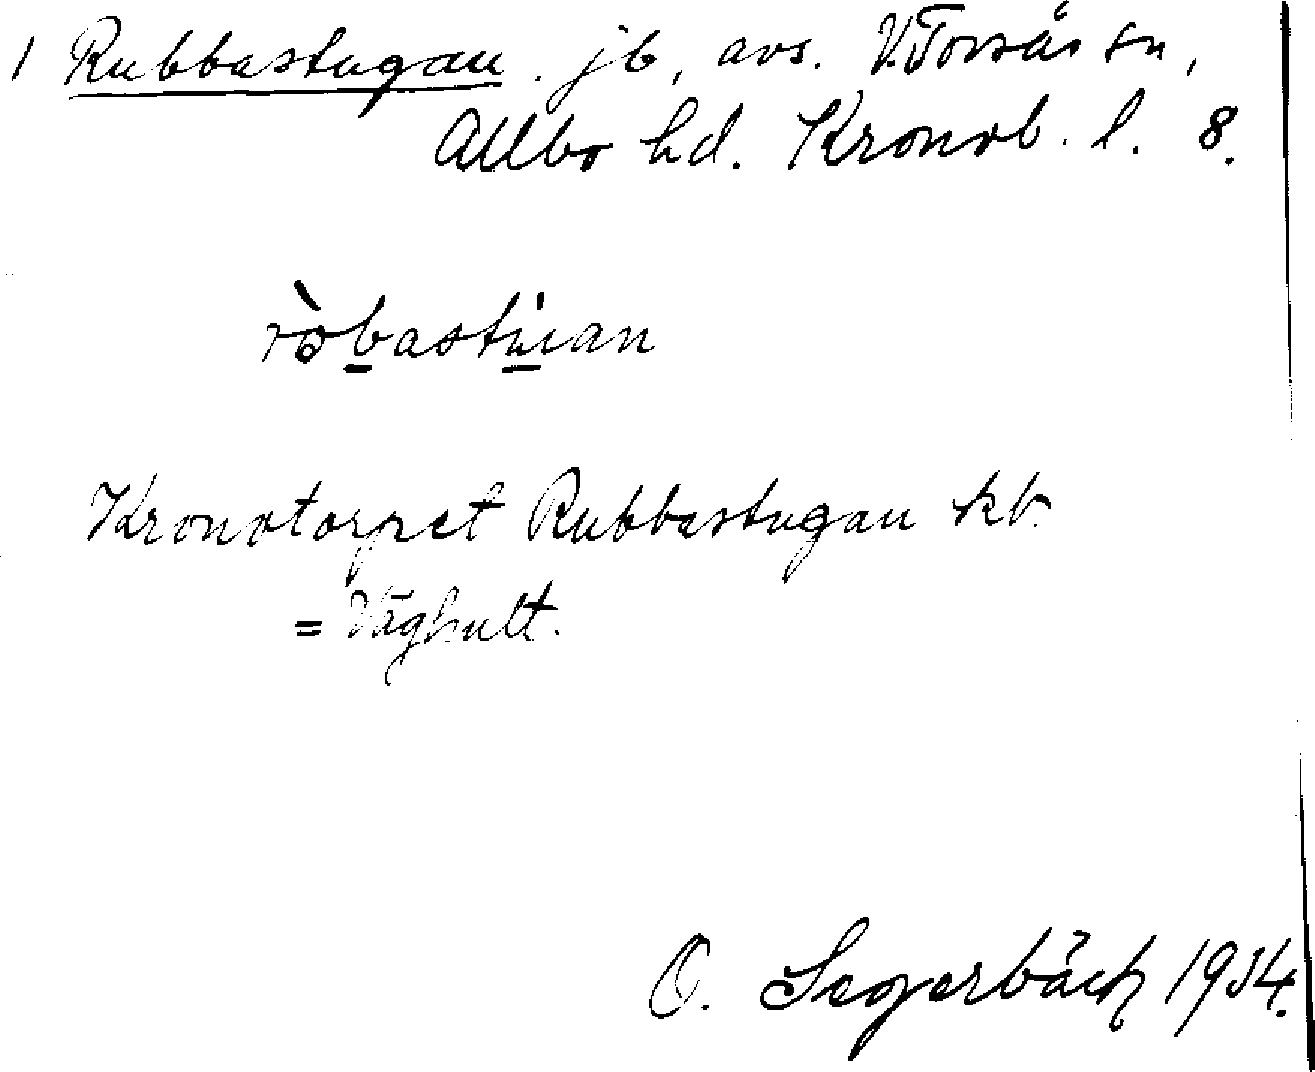 1 Rubbastugan. jb, avs. V. Torsås sn,
Allbo hd. Kronob. l. 8.
ròbastúan
Kronotorpet Rubbastugan kb.
= Våghult.
O. Segerbäck 1934.